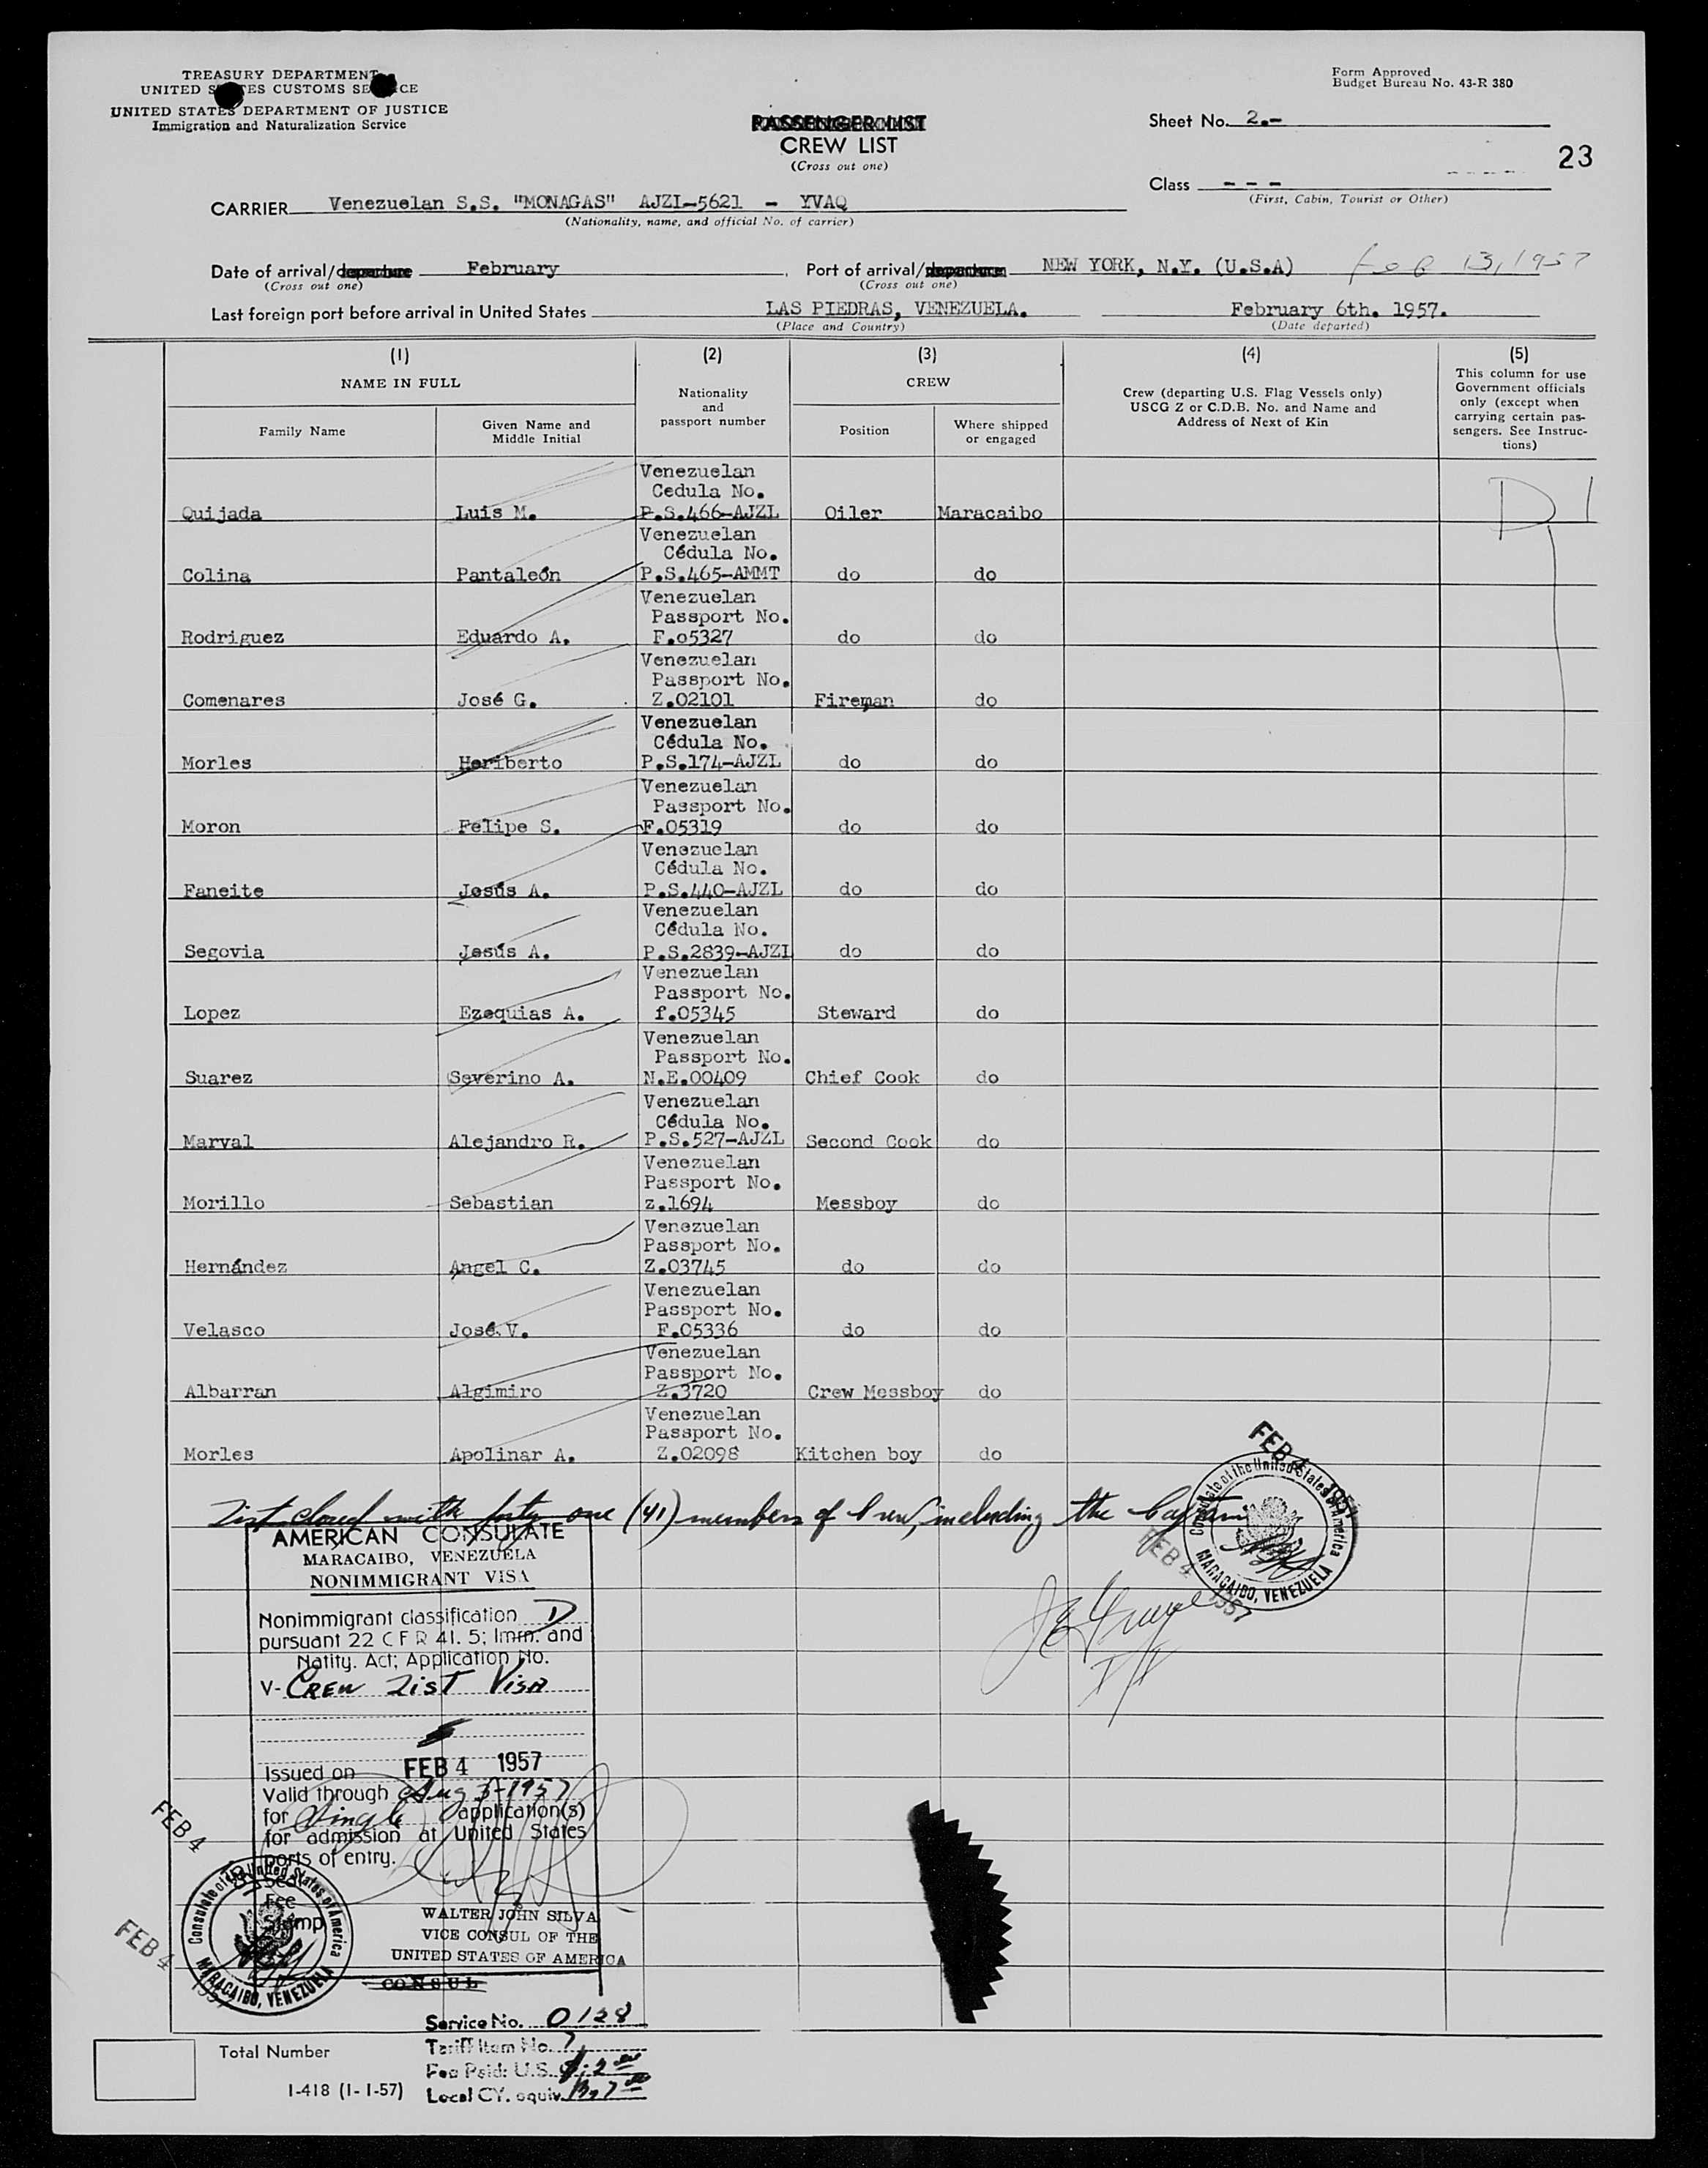 TREASURY DEPARTMENT
UNITED STATES CUSTOMS SERVICE
UNITED STATES DEPARTMENT OF JUSTICE
Immigration and Naturalization Service
Form Approved
Budget Bureau No. 43-R 380
PASSENGER LIST
CREW LIST
(Cross out one)
Sheet No. 2.-
23
Class - - -
(First, Cabin, Tourist or Other)
CARRIER Venezuelan S.S. "MONAGAS" AJZL-5621 - YVAQ
(Nationality, name, and official No. of carrier)
Date of arrival/departure February
(Cross out one)
Port of arrival/departure NEW YORK, N.Y. (U.S.A) Feb 13, 1957
(Cross out one)
Last foreign port before arrival in United States LAS PIEDRAS, VENEZUELA. February 6th. 1957.
(Place and Country) (Date departed)
(1) (2) (3) (4) (5)
NAME IN FULL
Family Name
Given Name and Middle Initial
Nationality and passport number
CREW
Position
Where shipped or engaged
Crew (departing U.S. Flag Vessels only)
USCG Z or C.D.B. No. and Name and
Address of Next of Kin
This column for use
Government officials
only (except when
carrying certain pas-
sengers. See Instruc-
tions)
Venezuelan
Cedula No.
Quijada Luis M. P.S.466-AJZL Oiler Maracaibo D 1
Venezuelan
Cédula No.
Colina Pantaleón P.S.465-AMMT do do
Venezuelan
Passport No.
Rodriguez Eduardo A. F.o5327 do do
Venezuelan
Passport No.
Comenares José G. Z.02101 Fireman do
Venezuelan
Cédula No.
Morles Heriberto P.S.174-AJZL do do
Venezuelan
Passport No.
Moron Felipe S. F.05319 do do
Venezuelan
Cédula No.
Faneite Jesús A. P.S.440-AJZL do do
Venezuelan
Cédula No.
Segovia Jesús A. P.S.2839-AJZL do do
Venezuelan
Passport No.
Lopez Ezequias A. f.05345 Steward do
Venezuelan
Passport No.
Suarez Severino A. N.E.00409 Chief Cook do
Venezuelan
Cédula No.
Marval Alejandro R. P.S.527-AJZL Second Cook do
Venezuelan
Passport No.
Morillo Sebastian z.1694 Messboy do
Venezuelan
Passport No.
Hernández Angel C. Z.03745 do do
Venezuelan
Passport No.
Velasco José V. F.05336 do do
Venezuelan
Passport No.
Albarran Algimiro Z.3720 Crew Messboy do
Venezuelan
Passport No.
Morles Apolinar A. Z.02098 Kitchen boy do
List closed with forty one (41) members of Crew, including the Captain
FEB 4 1957
Consulate of the United States of America
MARACAIBO, VENEZUELA
FEB 4 1957
AMERICAN CONSULATE
MARACAIBO, VENEZUELA
NONIMMIGRANT VISA
Nonimmigrant classification D
pursuant 22 C F R 41. 5; Imm. and
Natlty. Act; Application No.
V- CREW LIST VISA
Issued on FEB 4 1957
Valid through Aug 3-1957
for Single application(s)
for admission at United States
ports of entry.
Seal
Fee
Stamp
FEB 4
Consulate of the United States of America
MARACAIBO, VENEZUELA
FEB 4 1957
WALTER JOHN SILVA
VICE CONSUL OF THE
UNITED STATES OF AMERICA
CONSUL
Service No. 0128
Tariff Item No. 7
Fee Paid: U.S. $:2.00
Local CY. equiv. Bs 7.00
Total Number
I-418 (1-1-57)